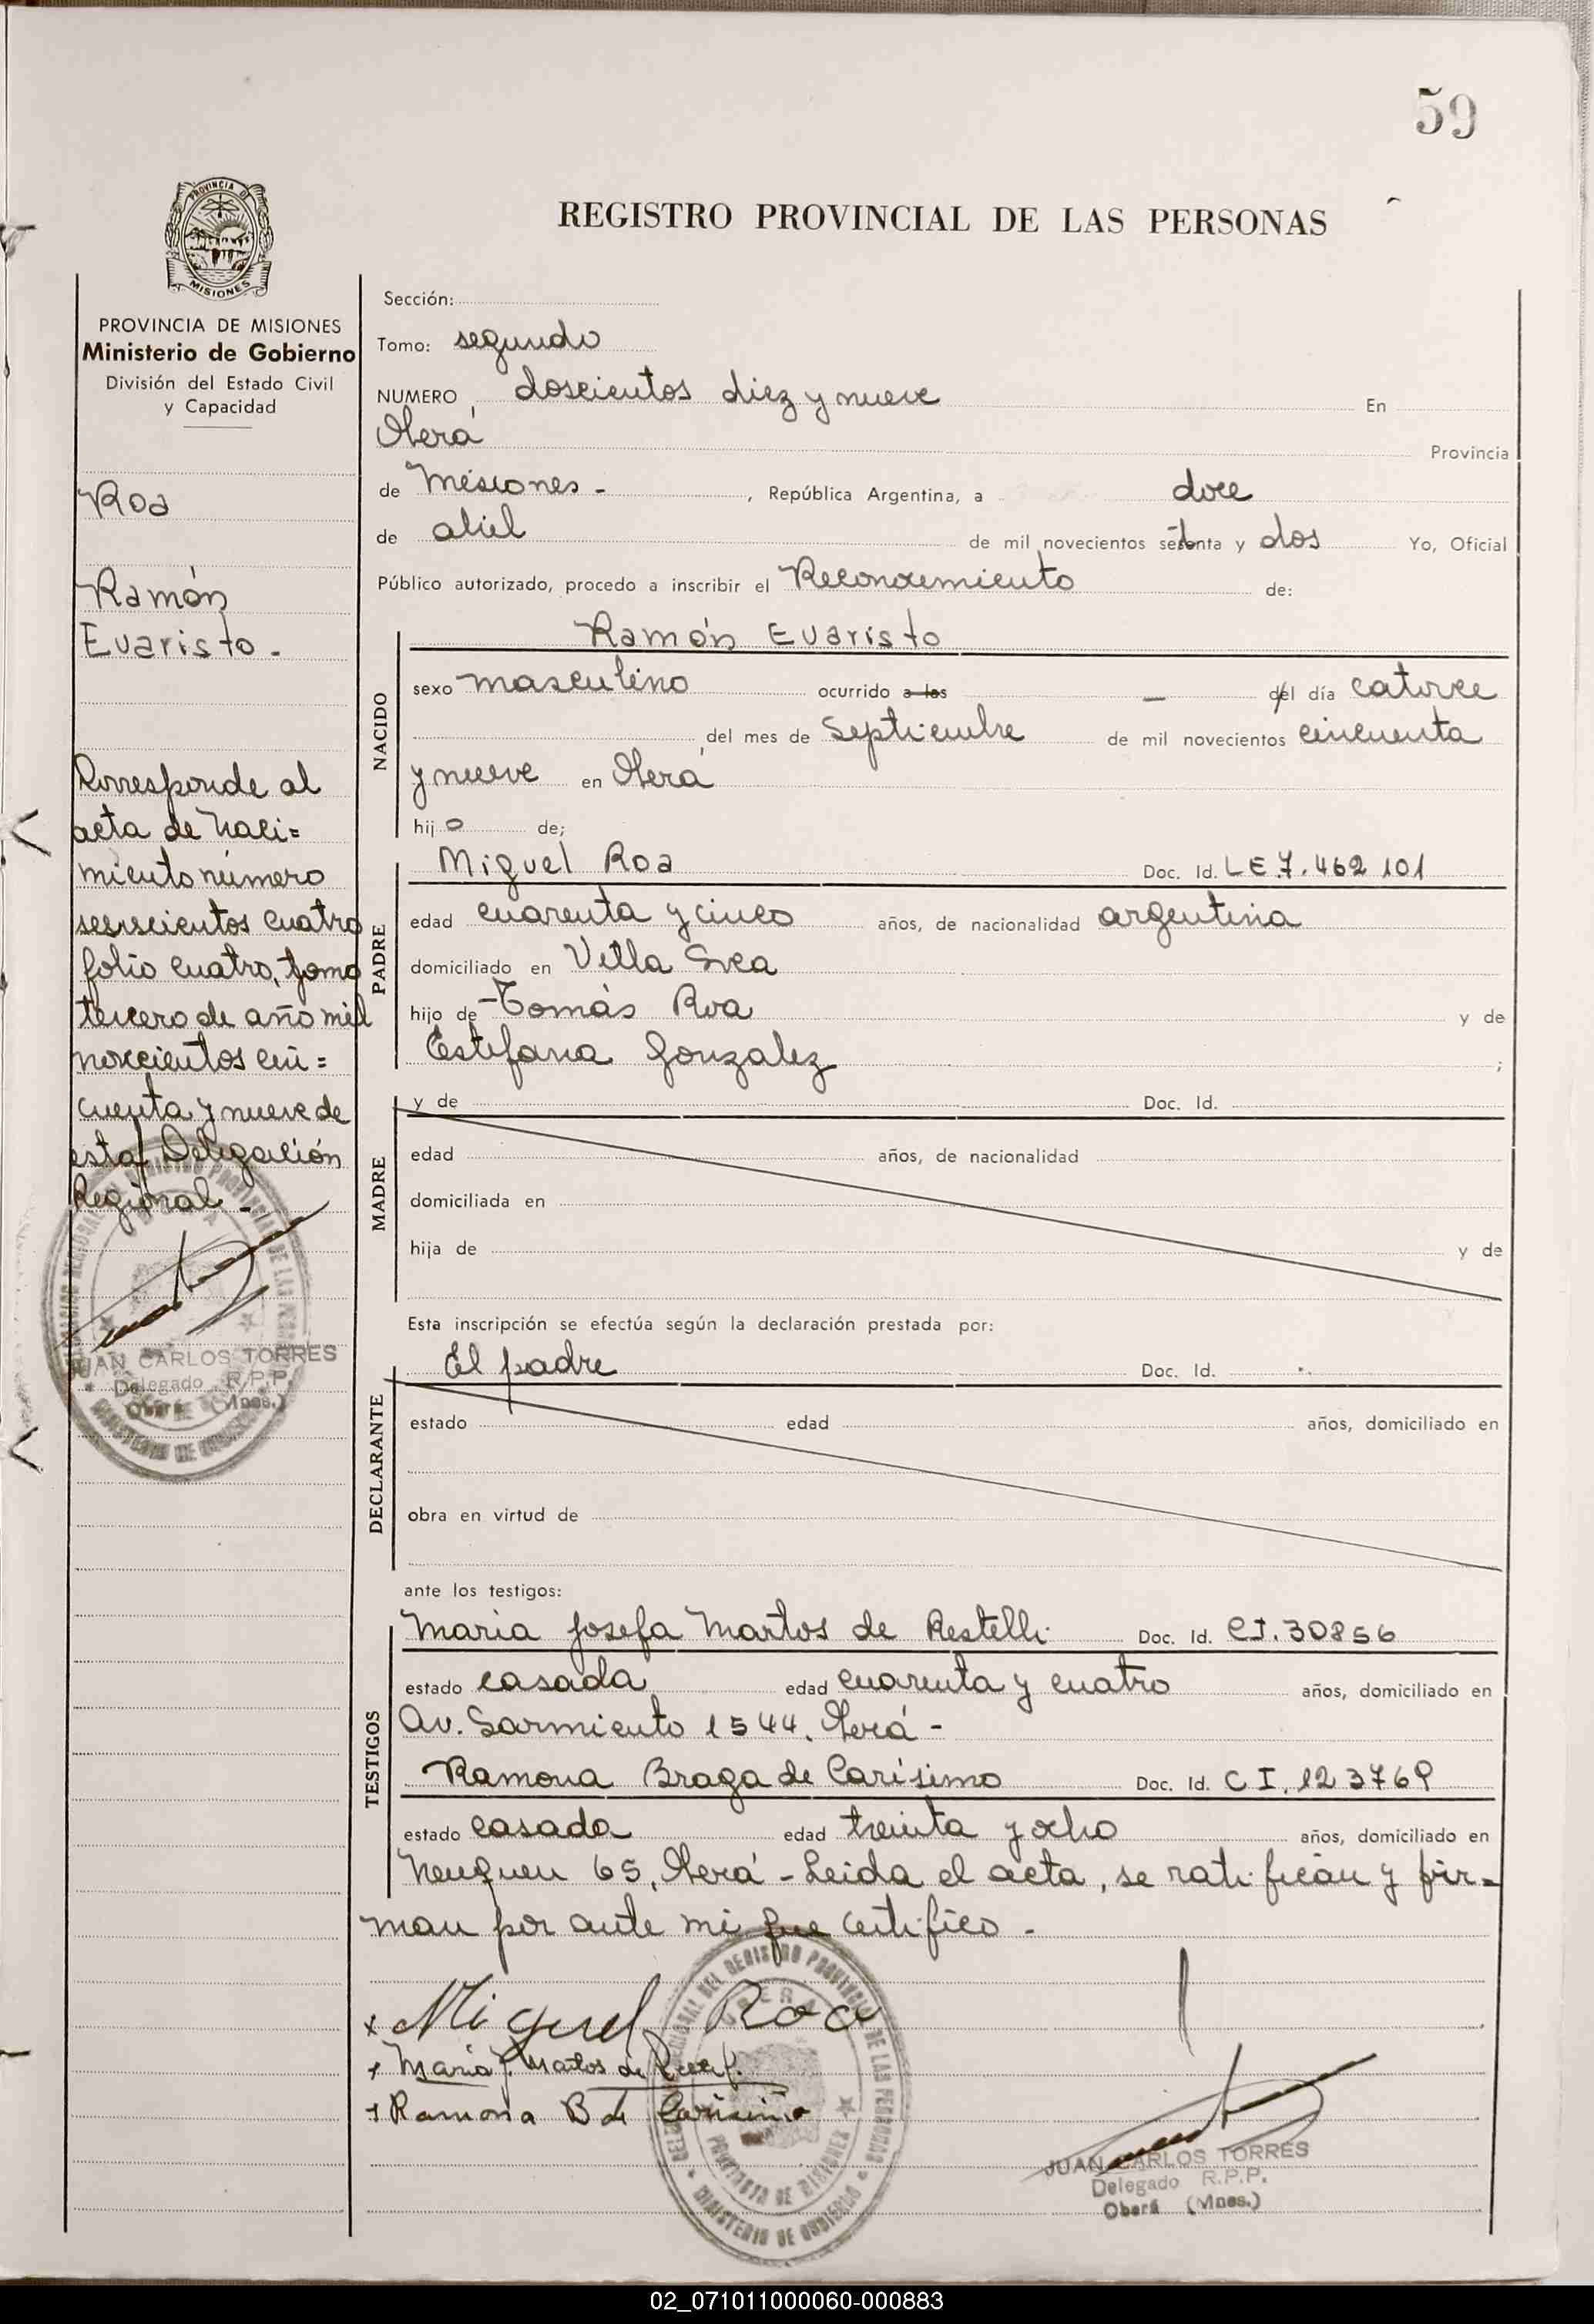 59
PROVINCIA DE
MISIONES
REGISTRO PROVINCIAL DE LAS PERSONAS
PROVINCIA DE MISIONES
Ministerio de Gobierno
División del Estado Civil
y Capacidad
Roa
Ramón
Evaristo.
Corresponde al
acta de naci=
miento número
seiscientos cuatro
folio cuatro, tomo
tercero de año mil
novecientos cin=
cuenta y nueve de
esta Delegación
Regional.
JUAN CARLOS TORRES
Delegado R.P.P.
Oberá (Mnes.)
Sección:
Tomo: segundo
NUMERO doscientos diez y nueve En
Oberá Provincia
de Misiones - , República Argentina, a doce
de abril de mil novecientos setenta y dos Yo, Oficial
Público autorizado, procedo a inscribir el Reconocimiento de:
NACIDO
Ramón Evaristo
sexo masculino ocurrido a las — del día catorce
del mes de Septiembre de mil novecientos cincuenta
y nueve en Oberá
hijo de;
PADRE
Miguel Roa Doc. Id. LE.7.462 101
edad cuarenta y cinco años, de nacionalidad argentina
domiciliado en Villa Svea
hijo de Tomás Roa y de
Estefana Gonzalez ;
MADRE
y de Doc. Id.
edad años, de nacionalidad
domiciliada en
hija de y de
Esta inscripción se efectúa según la declaración prestada por:
DECLARANTE
El padre Doc. Id.
estado edad años, domiciliado en
obra en virtud de
ante los testigos:
TESTIGOS
Maria Josefa Martos de Restelli Doc. Id. CI.30856
estado casada edad cuarenta y cuatro años, domiciliado en
Av. Sarmiento 1544. Oberá -
Ramona Braga de Carísimo Doc. Id. C I. 123769
estado casada edad treinta y ocho años, domiciliado en
Neuquen 65, Oberá - Leida el acta, se ratifican y fir=
man por ante mi que certifico -
x Miguel Roa
Maria J. Martos de
Ramona B de Carisimo
JUAN CARLOS TORRES
Delegado R.P.P.
Oberá (Mnes.)
02_071011000060-000883